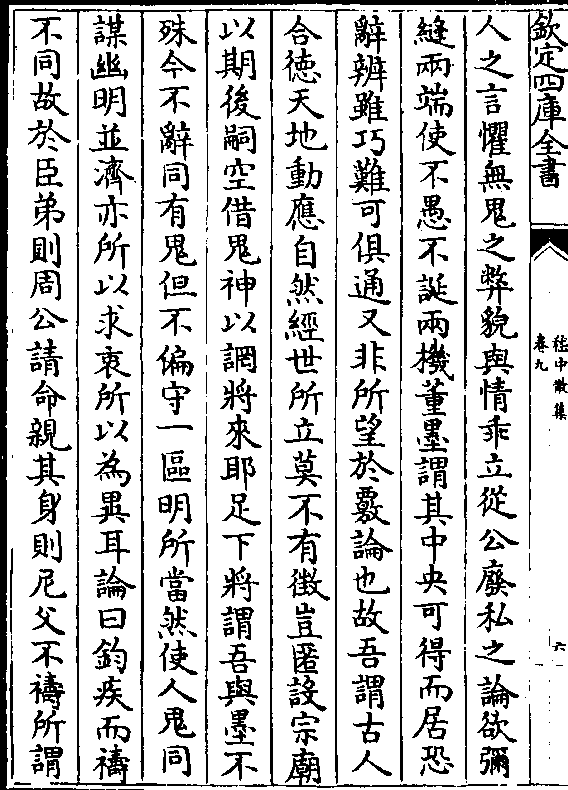 欽定四庫全書
嵇中散集
卷九
六
人之言懼無鬼之弊貌與情乖立從公廢私之論欲彌
縫兩端使不愚不誕兩機董墨謂其中央可得而居恐
辭辨雖巧難可俱通又非所望於覈論也故吾謂古人
合徳天地動應自然經世所立莫不有徴豈匿設宗廟
以期後嗣空借鬼神以䛼將來耶足下將謂吾與墨不
殊今不辭同有鬼但不偏守一區明所當然使人鬼同
謀幽明並濟亦所以求衷所以為異耳論曰鈞疾而禱
不同故於臣弟則周公請命親其身則尼父不禱所謂